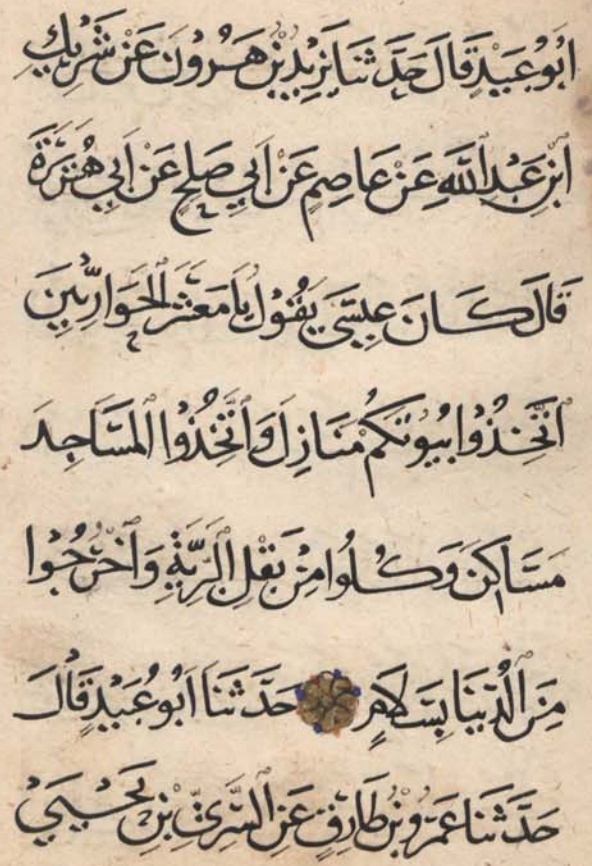 اَبُو عُبَيْدٍ قَالَ حَدَّثَنَا يَزِيْدُ بْنُ هٰرُوْنَ عَنْ شَرِيْكِ
ابْنِ عَبْدِ اللّٰهِ عَنْ عَاصِمٍ عَنْ اَبِي صٰلِحٍ عَنْ اَبِي هُرَيْرَةَ
قَالَ كَانَ عِيسَى يَقُوْلُ يَا مَعْشَرَ الْحَوَارِيِّينَ
اتَّخِذُوْا بُيُوْتَكُمْ مَنَازِلَ وَاتَّخِذُوا الْمَسَاجِدَ
مَسَاكِنَ وَكُلُوْا مِنْ بَقْلِ الْبَرِّيَّةِ وَاخْرُجُوْا
مِنَ الدُّنْيَا بِسَلَامٍ حَدَّثَنَا اَبُو عُبَيْدٍ قَالَ
حَدَّثَنَا عَمْرُو بْنُ طَارِقٍ عَنِ السَّرِيِّ بْنِ يَحْيٰي